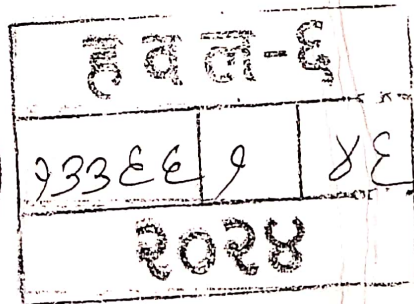 हवल-६
१३३६६ १ ४६
२०२४